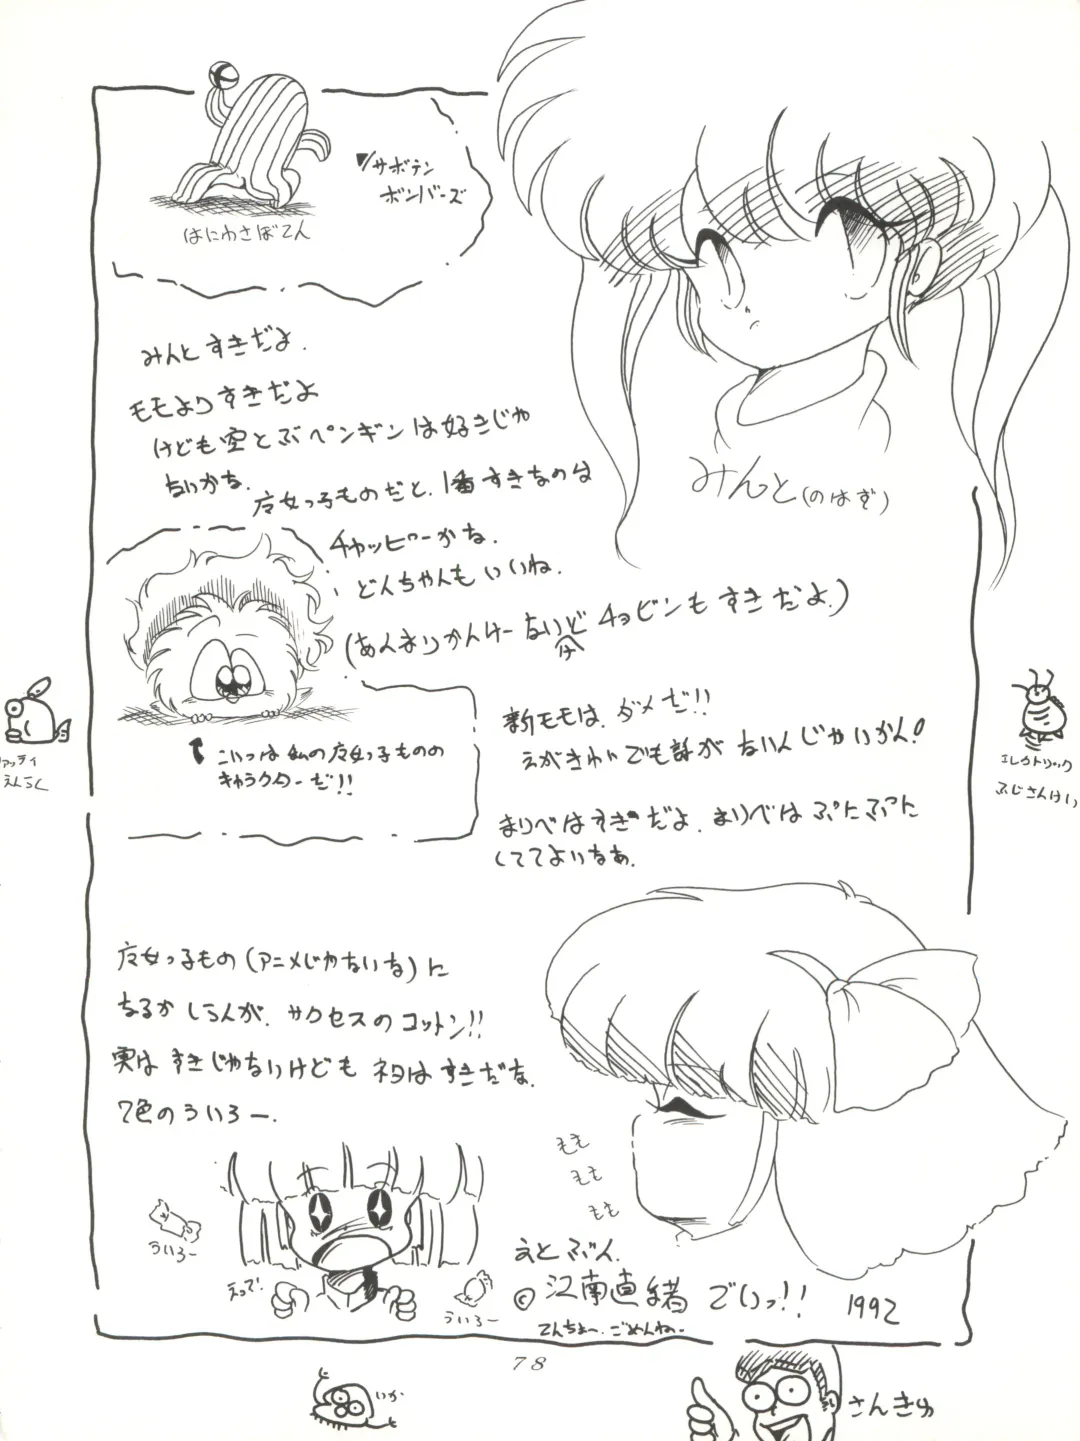 サボテン
ボンバーズ
はにわさぼてん
みんと(のはず)
みんとすきだよ.
モモよりすきだよ
けども空とぶペンギンは好きじゃ
ないかな.
魔女っ子ものだと、1番すきなのは
チャッピーかな.
どんちゃんもいいね.
(あんまりかんけーないどチョビンもすきだよ.)
ケ
こいつは私の魔女っ子ものの
キャラクターだ!!
新モモは、ダメだ!!
えがきれいでも話がないんじゃいかん!
まりべはすきだよ.まりべはぷにぷにた
しててよいなあ.
えんらく
エレクトリック
ふじさんけい
魔女っ子もの(アニメじゃないな)に
なるかしらんが、サクセスのコットン!!
実はすきじゃないけども ネタはすきだな.
7色のういろー.
もも
もも
もも
ういろー
えって.
ういろー
えとぶん.
©江南直緒 でいっ!! 1992
てんちょー、ごめんねー
78
いか
さんきゅ